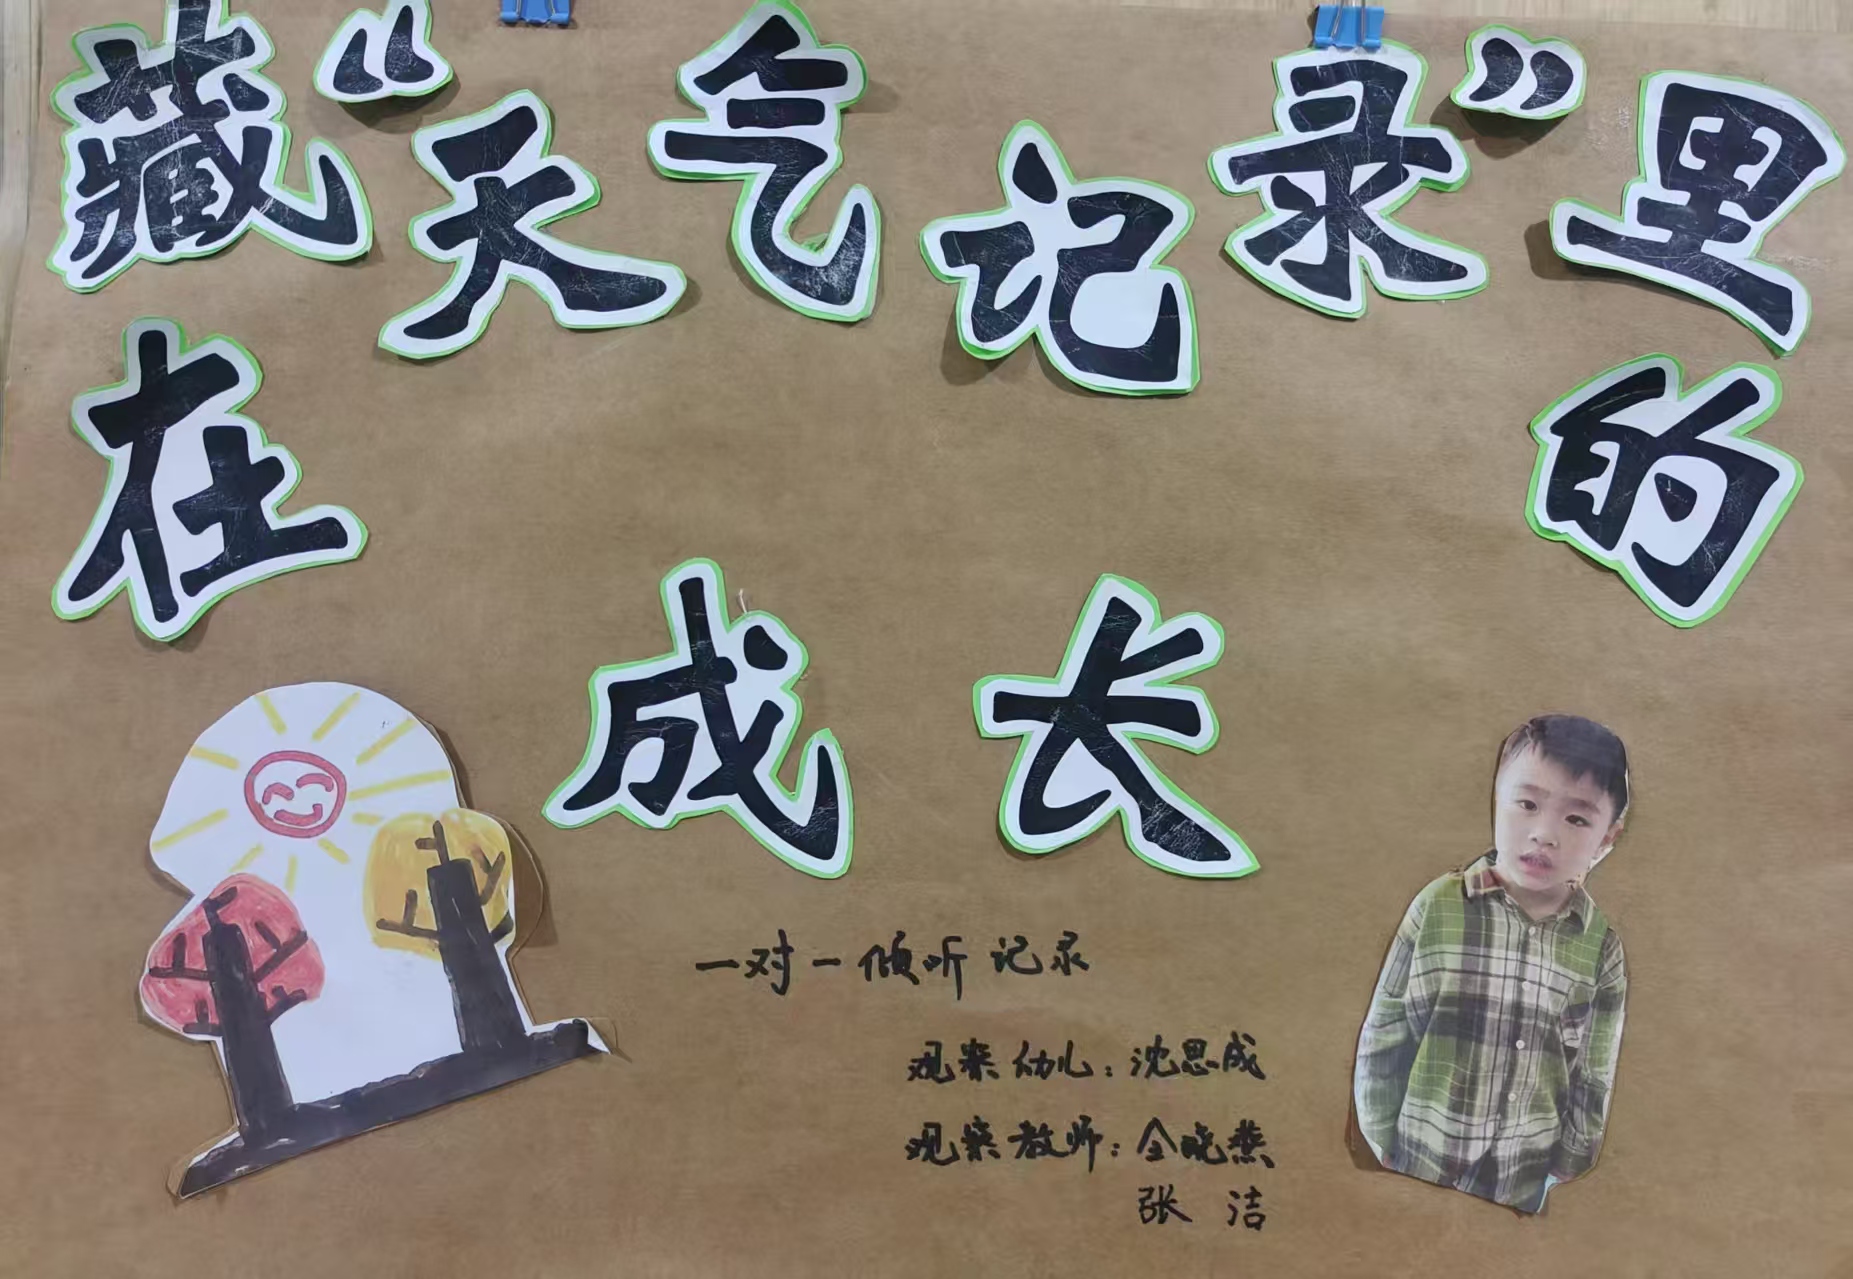 藏“天气记录”里
在 的
成长
一对一倾听记录
观察幼儿：沈思成
观察教师：全晓燕
张 洁